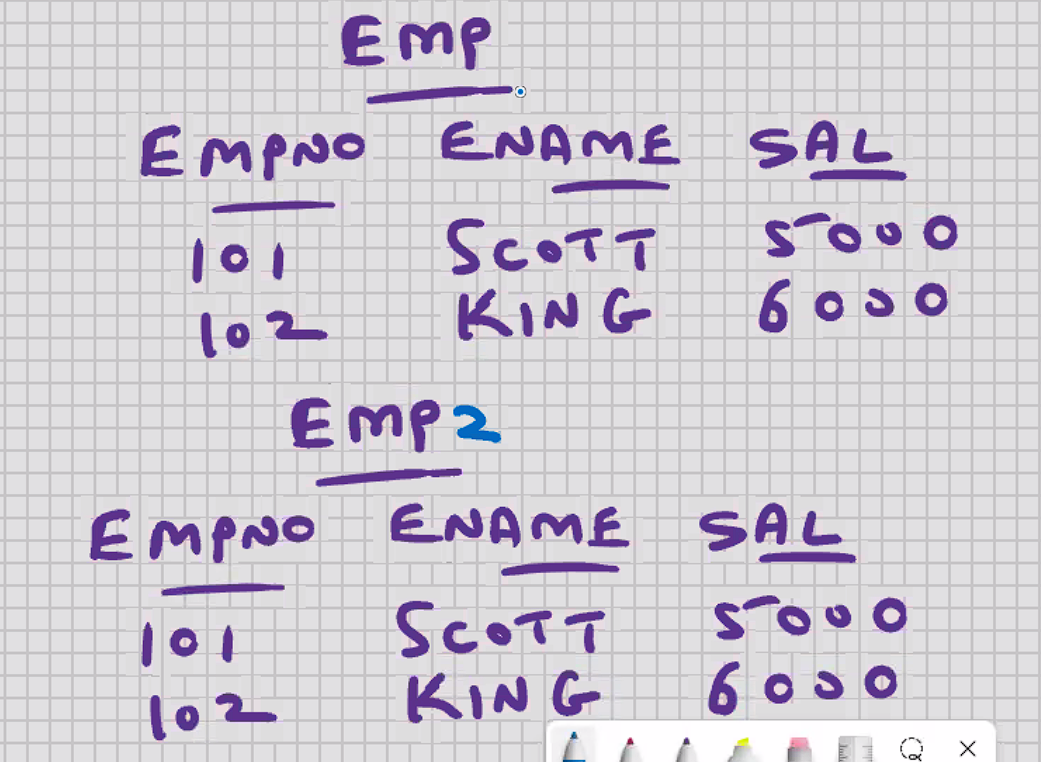 EMP
EMPNO ENAME SAL
101 SCOTT 5000
102 KING 6000
EMP2
EMPNO ENAME SAL
101 SCOTT 5000
102 KING 6000